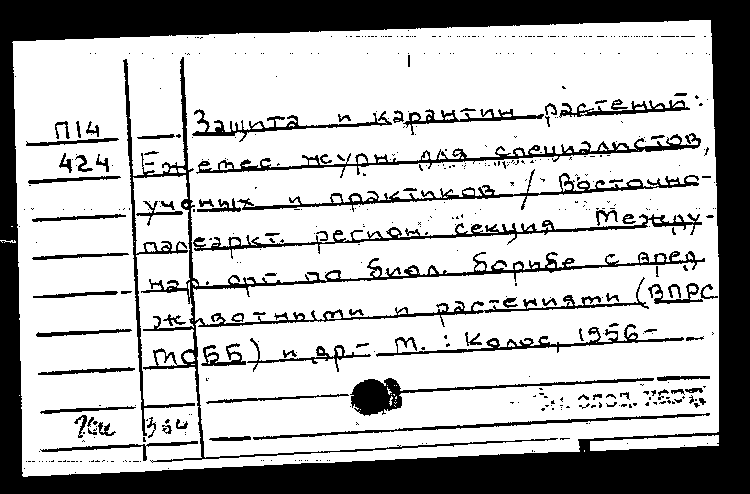 П14 Защита и карантин растений:
424 Ежемес. журн. для специалистов,
ученых и практиков / Восточно-
палеаркт. регион. секция Между-
нар. орг. по биол. борьбе с вред.
животными и растениями (ВПРС
МОББ) и др.- М.: Колос, 1956-
см. след. карт.
364